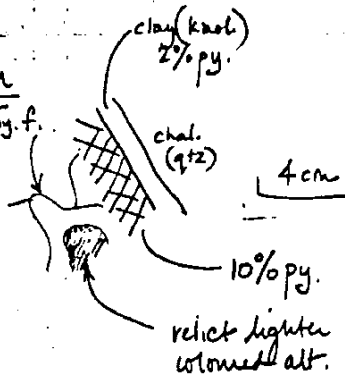 clay (kaol.)
2% py.
py. f.
chal.
(qtz)
4 cm
10% py.
relict lighter
coloured alt.